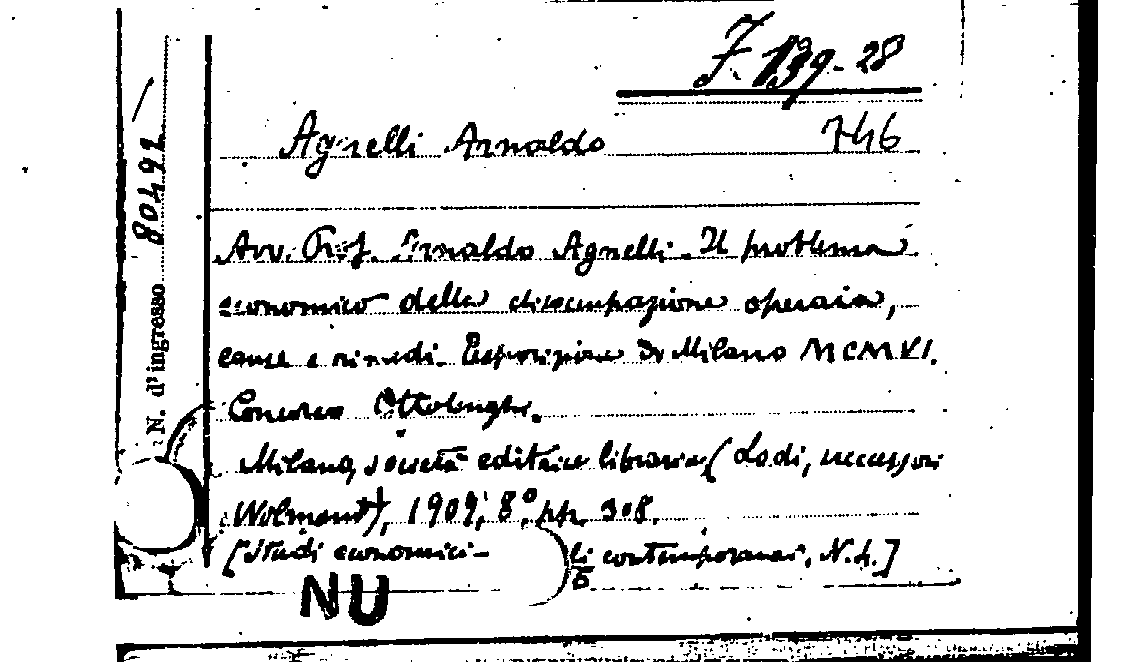 F. 139-28
746
Agnelli Arnaldo
Avv. Prof. Arnaldo Agnelli. Il problema
economico della disoccupazione operaia,
cause e rimedi. Esposizione di Milano MCMVI.
Concorso Ottolenghi.
Milano, società editrice libraria (Lodi, successori
Wolmant), 1909, 8° pp. 308.
[Studi economici-
li contemporanei, N. 4.]
NU
N. d'ingresso 80492